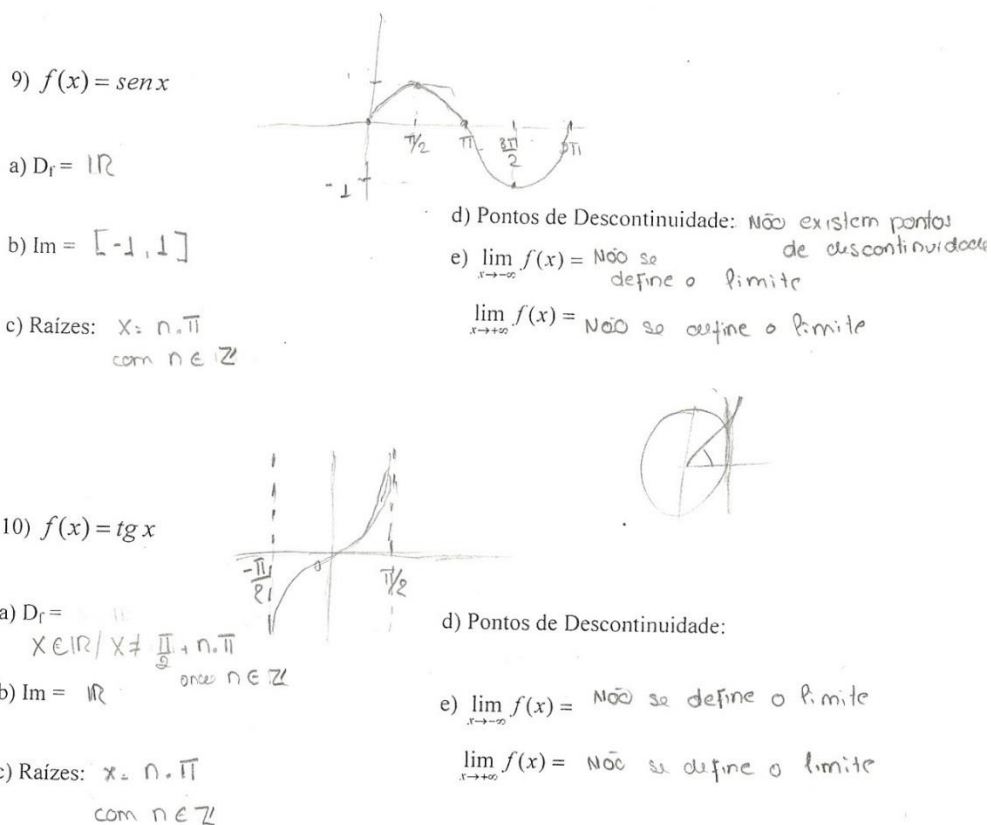 9) f(x) = sen x
1
π/2 π 3π/2 2π
-1
a) Df = IR
b) Im = [-1, 1]
c) Raízes: x = n.π
com n ∈ Z
d) Pontos de Descontinuidade: Não existem pontos
de descontinuidade
e) lim x→-∞ f(x) = Não se
define o limite
lim x→+∞ f(x) = Não se define o limite
10) f(x) = tg x
-π/2 0 π/2
a) Df =
x ∈ IR / x ≠ π/2 + n.π
onde n ∈ Z
b) Im = IR
c) Raízes: x = n.π
com n ∈ Z
d) Pontos de Descontinuidade:
e) lim x→-∞ f(x) = Não se define o limite
lim x→+∞ f(x) = Não se define o limite